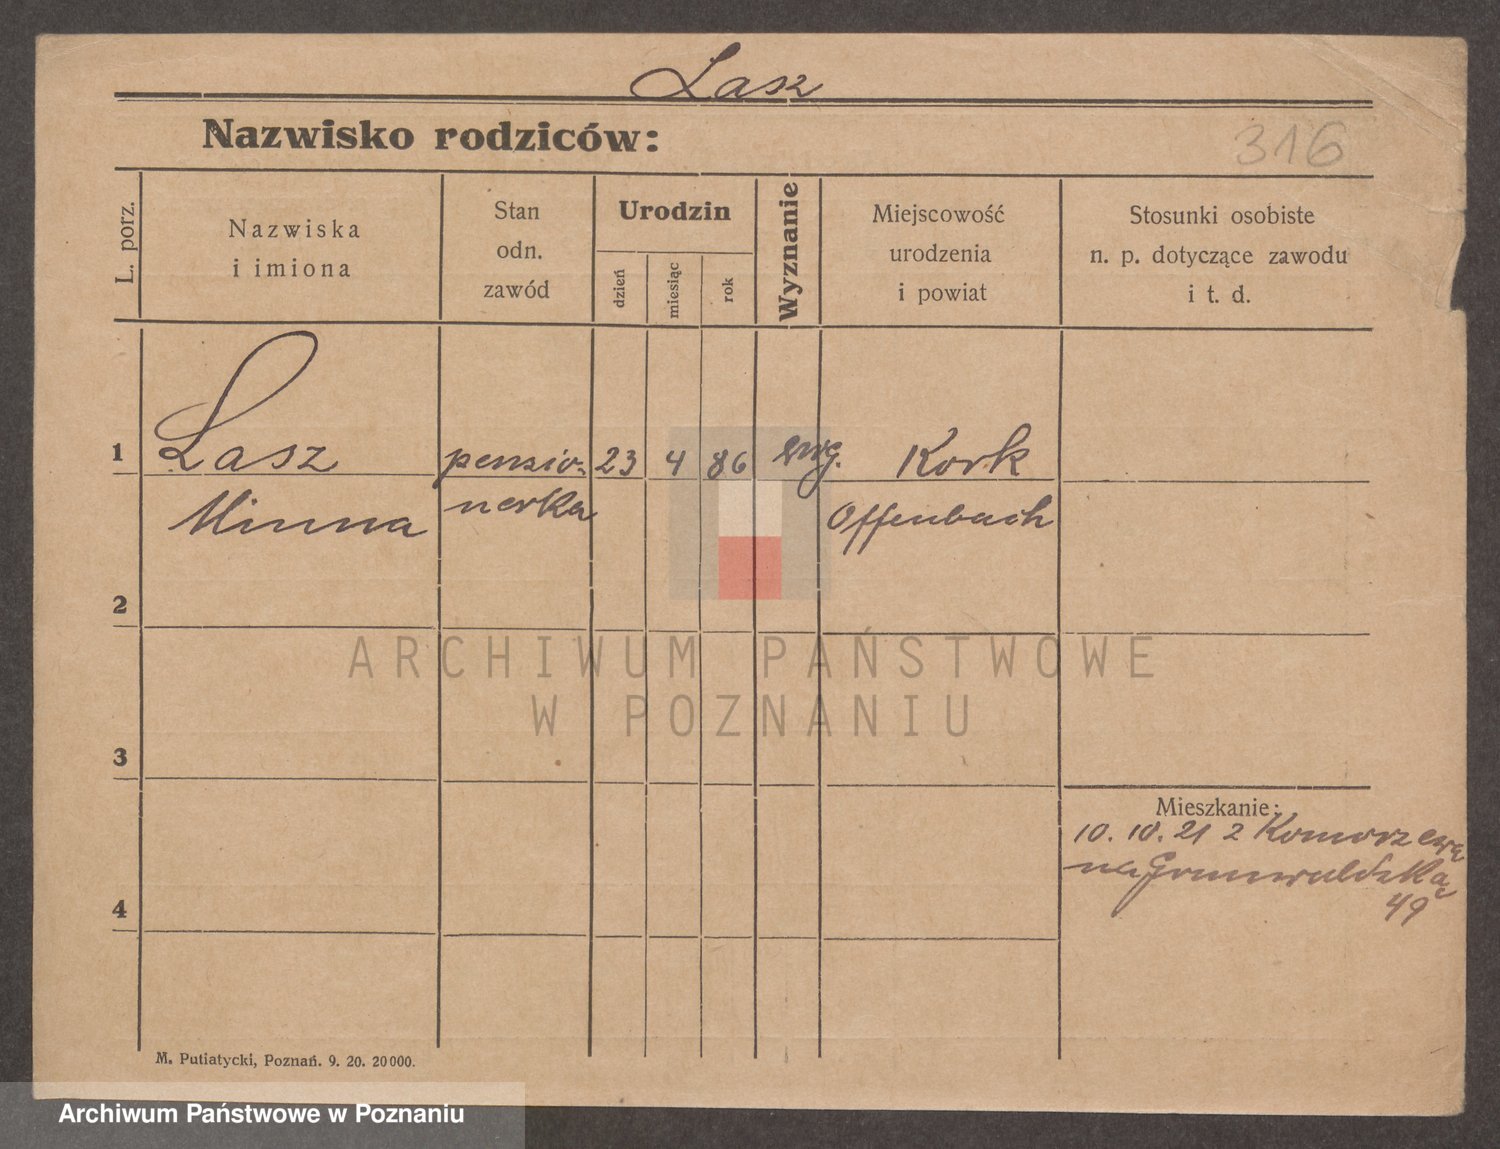 Lasz
Nazwisko rodziców:
316
L. porz.
Nazwiska
i imiona
Stan
odn.
zawód
Urodzin
dzień
miesiąc
rok
Wyznanie
Miejscowość
urodzenia
i powiat
Stosunki osobiste
n. p. dotyczące zawodu
i t. d.
1
Lasz
Minna
pensio-
nerka
23
4
86
ewg.
Kork
Offenbach
2
3
4
Mieszkanie:
10. 10. 21 z Komorzewa
na Grunwaldzką
49
M. Putiatycki, Poznań. 9. 20. 20000.
ARCHIWUM PAŃSTWOWE
W POZNANIU
Archiwum Państwowe w Poznaniu